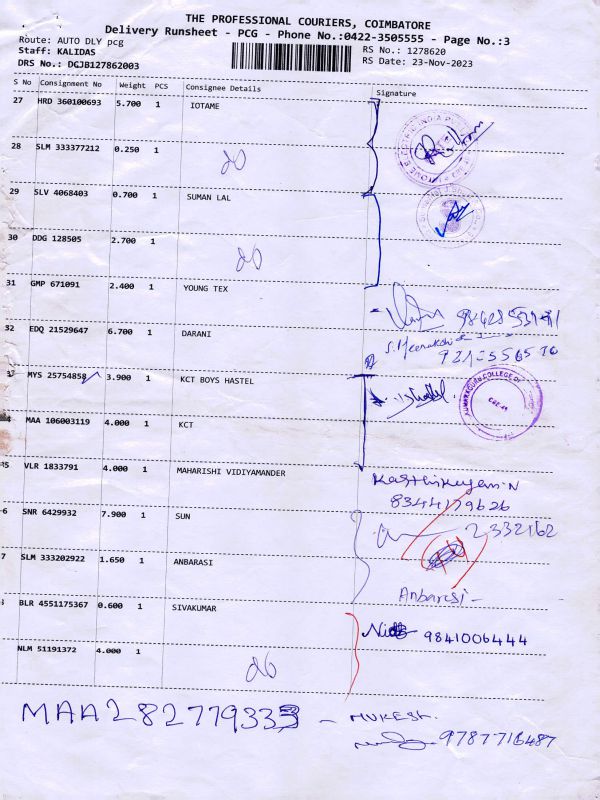 THE PROFESSIONAL COURIERS, COIMBATORE
Delivery Runsheet - PCG - Phone No.:0422-3505555 - Page No.:3
Route: AUTO DLY pcg
RS No.: 1278620
Staff: KALIDAS
RS Date: 23-Nov-2023
DRS No.: DGJB127862003
S No Consignment No Weight PCS Consignee Details Signature
27 HRD 360100693 5.700 1 IOTAME
28 SLM 333377212 0.250 1
29 SLV 4068403 0.700 1 SUMAN LAL
30 DDG 128505 2.700 1
31 GMP 671091 2.400 1 YOUNG TEX
32 EDQ 21529647 6.700 1 DARANI
MYS 25754858 3.900 1 KCT BOYS HASTEL
MAA 106003119 4.000 1 KCT
VLR 1833791 4.000 1 MAHARISHI VIDIYAMANDER
Karthikeyan.N
8344179626
SNR 6429932 7.900 1 SUN
2332162
SLM 333202922 1.650 1 ANBARASI
Anbarasi
BLR 4551175367 0.600 1 SIVAKUMAR
9841006444
NLM 51191372 4.000 1
MAA282779333 - MUKESH.
9787716487